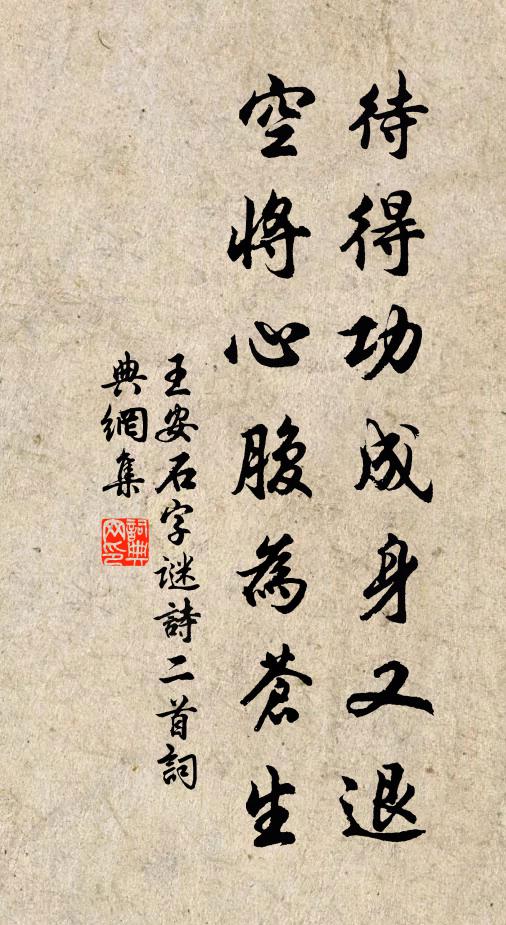 待得功成身又退
空將心腹為蒼生
王安石字谜詩二首詞
典網集
詞典
网印